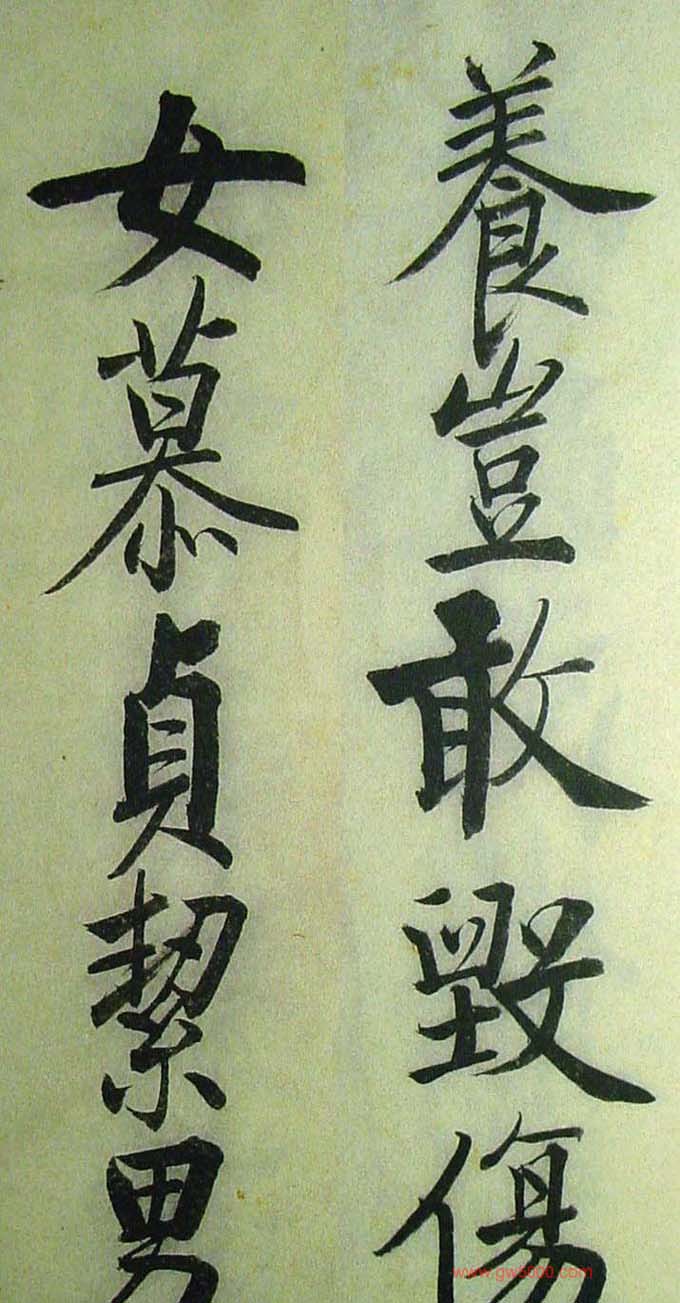 養豈敢毀傷
女慕貞絜男
www.gw5000.com